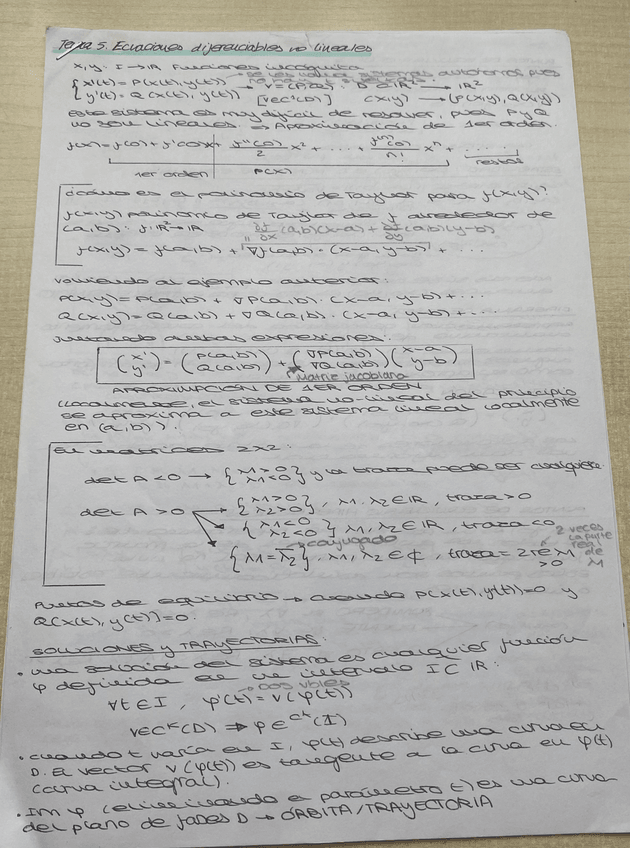 Tema 5. Ecuaciones diferenciables no lineales
x, y: I → IR funciones incógnita
{x'(t) = P(x(t), y(t)) → se les llama sistemas autónomos pues no hay t
{y'(t) = Q(x(t), y(t)) → v = (P, Q) D ⊂ IR² → IR²
[v ∈ C¹(D)] (x,y) → (P(x,y), Q(x,y))
este sistema es muy difícil de resolver, pues P y Q
no son lineales. ⇒ Aproximación de 1er orden.
f(x) = f(0) + f'(0)x + f''(0)/2 x² + ... + f⁽ⁿ⁾(0)/n! xⁿ + ...
1er orden P(x) restos
¿Cómo es el polinomio de Taylor para f(x,y)?
f(x,y) polinomio de Taylor de f alrededor de
(a,b): f: IR² → IR ∂f/∂x (a,b)(x-a) + ∂f/∂y (a,b)(y-b)
f(x,y) = f(a,b) + ∇f(a,b) · (x-a, y-b) + ...
volviendo al ejemplo anterior:
P(x,y) = P(a,b) + ∇P(a,b) · (x-a, y-b) + ...
Q(x,y) = Q(a,b) + ∇Q(a,b) · (x-a, y-b) + ...
juntando ambas expresiones:
(x' y') = (P(a,b) Q(a,b)) + (∇P(a,b) ∇Q(a,b)) (x-a y-b)
Matriz jacobiana
APROXIMACIÓN DE 1ER ORDEN
(localmente, el sistema no lineal del principio
se aproxima a este sistema lineal localmente
en (a,b)).
En matrices 2x2:
det A < 0 → {λ1 > 0 λ2 < 0} y la traza puede ser cualquiera
det A > 0 → {λ1 > 0 λ2 > 0}, λ1, λ2 ∈ IR, traza > 0
{λ1 < 0 λ2 < 0} λ1, λ2 ∈ IR, traza < 0
→ conjugado
{λ1 = λ̄2}, λ1, λ2 ∈ ¢, traza = 2 re λ1 > 0
2 veces la parte real de λ
Puntos de equilibrio → cuando P(x(t), y(t)) = 0 y
Q(x(t), y(t)) = 0.
SOLUCIONES Y TRAYECTORIAS:
• una solución del sistema es cualquier función
φ definida en un intervalo I ⊂ IR:
→ dos vbles
∀t ∈ I, φ'(t) = v(φ(t))
v ∈ Cᵏ(D) ⇒ φ ∈ Cᵏ(I)
• cuando t varía en I, φ(t) describe una curva en
D. El vector v(φ(t)) es tangente a la curva en φ(t)
(curva integral).
• Im φ (eliminando el parámetro t) es una curva
del plano de fases D → ÓRBITA/TRAYECTORIA